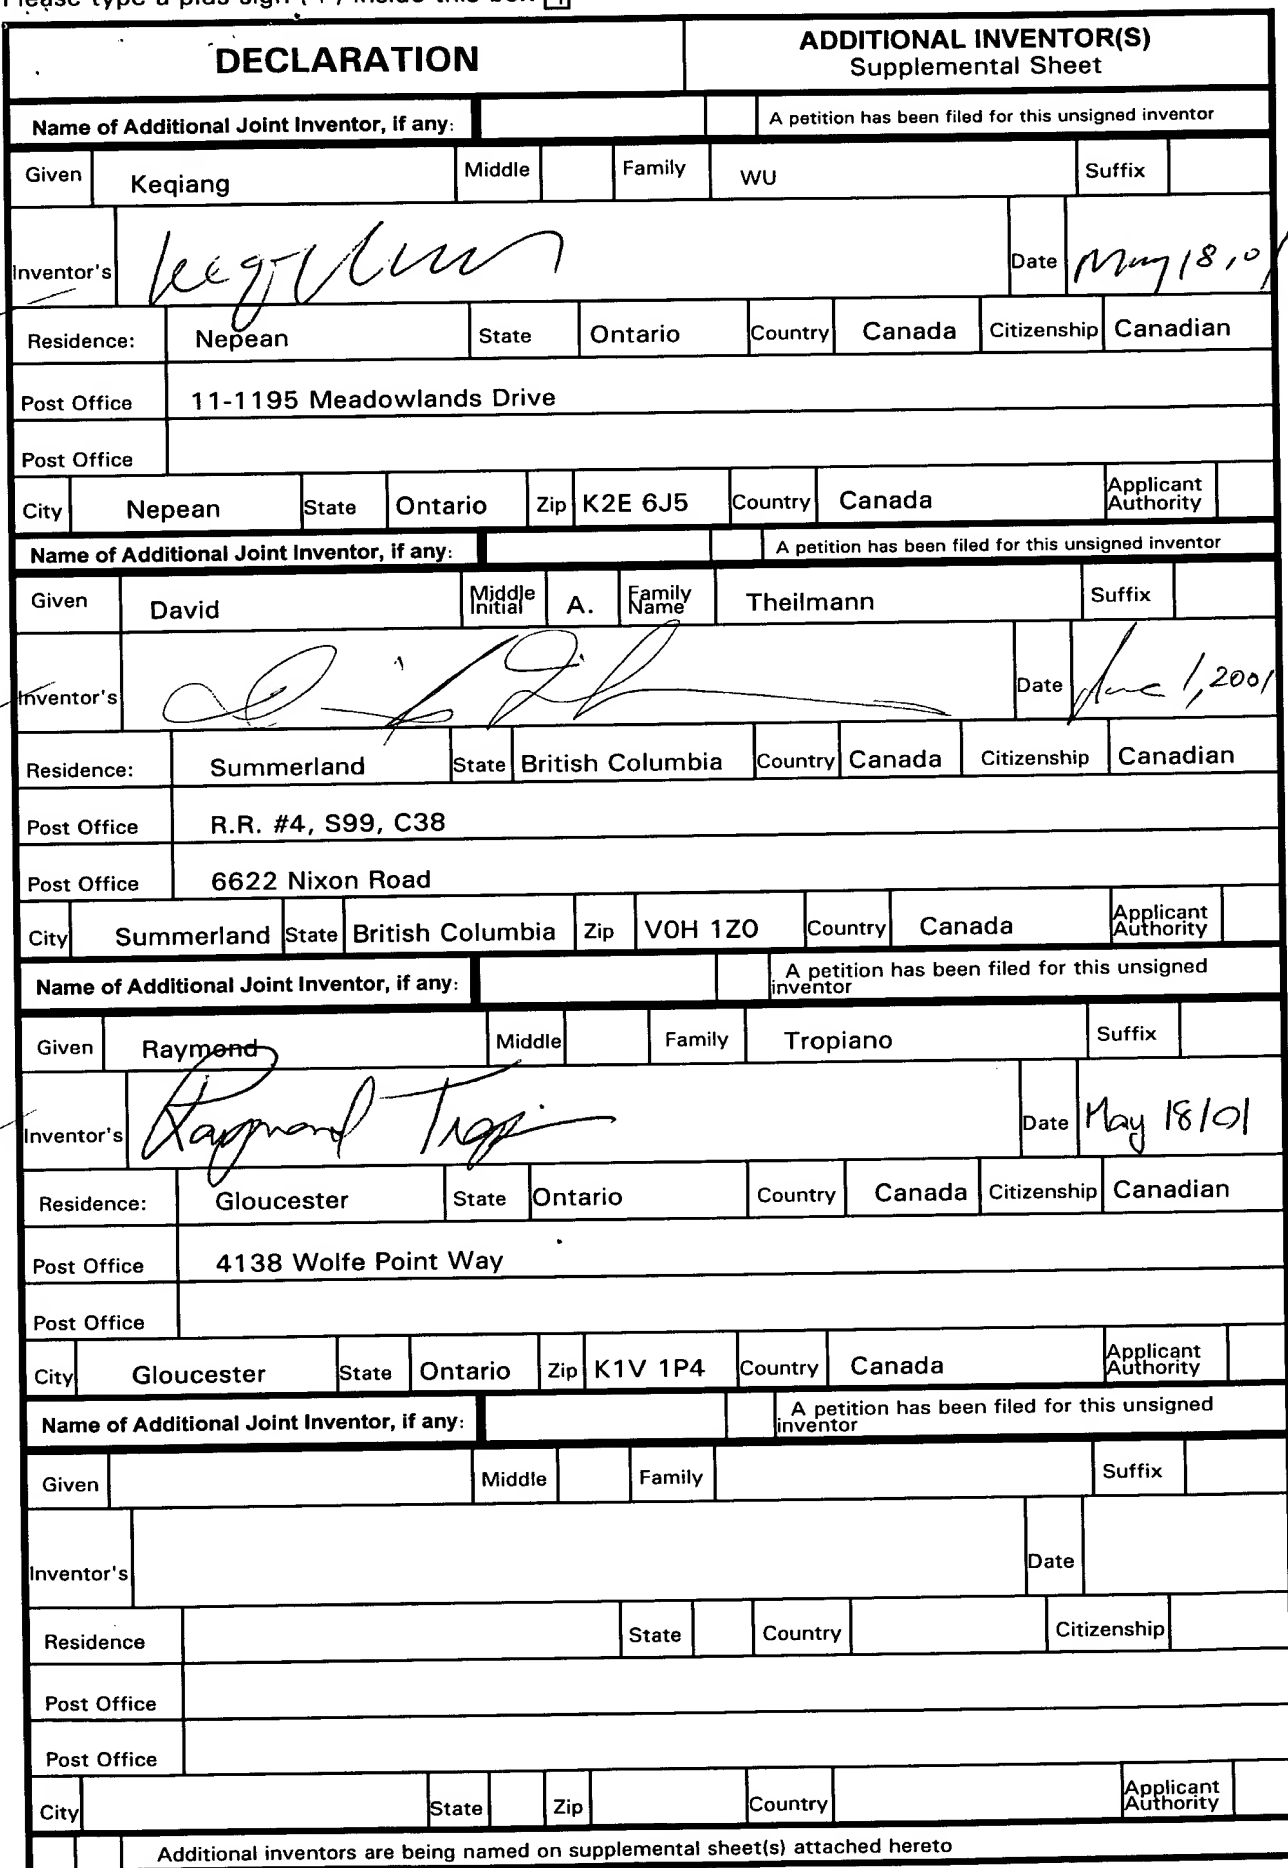 Please type a plus sign (+) inside this box
DECLARATION
ADDITIONAL INVENTOR(S)
Supplemental Sheet
Name of Additional Joint Inventor, if any: A petition has been filed for this unsigned inventor
Given Keqiang Middle Family WU Suffix
Inventor's Date May 18, 01
Residence: Nepean State Ontario Country Canada Citizenship Canadian
Post Office 11-1195 Meadowlands Drive
Post Office
City Nepean State Ontario Zip K2E 6J5 Country Canada Applicant Authority
Name of Additional Joint Inventor, if any: A petition has been filed for this unsigned inventor
Given David Middle Initial A. Family Name Theilmann Suffix
Inventor's Date June 1, 2001
Residence: Summerland State British Columbia Country Canada Citizenship Canadian
Post Office R.R. #4, S99, C38
Post Office 6622 Nixon Road
City Summerland State British Columbia Zip V0H 1Z0 Country Canada Applicant Authority
Name of Additional Joint Inventor, if any: A petition has been filed for this unsigned inventor
Given Raymond Middle Family Tropiano Suffix
Inventor's Raymond Date May 18/01
Residence: Gloucester State Ontario Country Canada Citizenship Canadian
Post Office 4138 Wolfe Point Way
Post Office
City Gloucester State Ontario Zip K1V 1P4 Country Canada Applicant Authority
Name of Additional Joint Inventor, if any: A petition has been filed for this unsigned inventor
Given Middle Family Suffix
Inventor's Date
Residence State Country Citizenship
Post Office
Post Office
City State Zip Country Applicant Authority
Additional inventors are being named on supplemental sheet(s) attached hereto